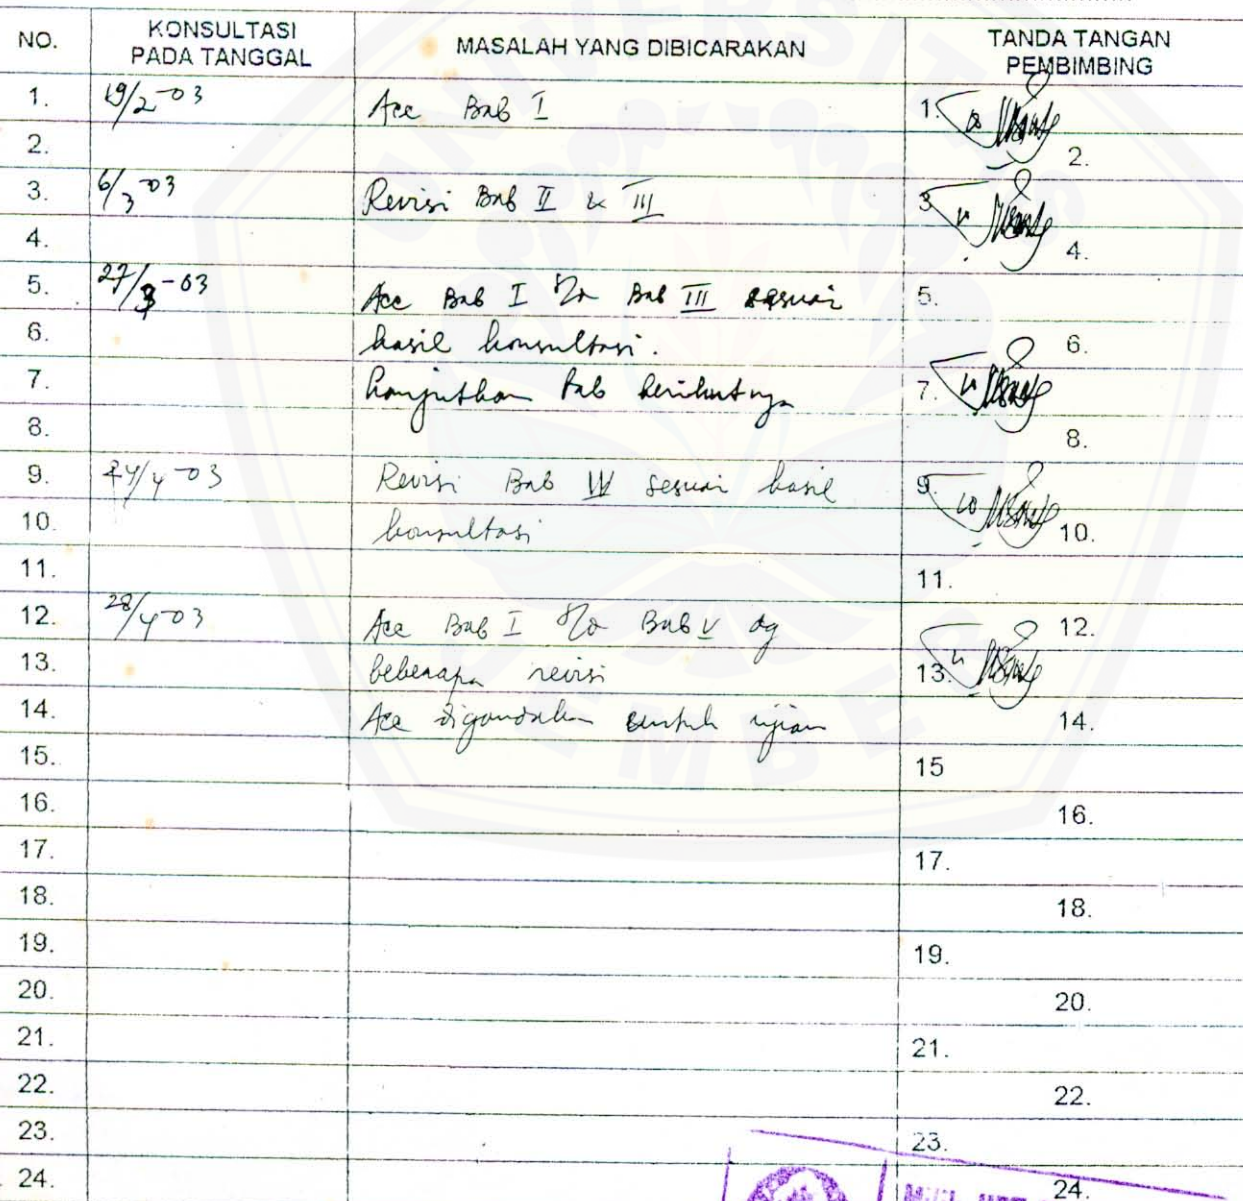 NO. KONSULTASI PADA TANGGAL MASALAH YANG DIBICARAKAN TANDA TANGAN PEMBIMBING
1. 19/2-03 Acc Bab I 1.
2. 2.
3. 6/3-03 Revisi Bab II & III 3
4. 4.
5. 27/3-03 Acc Bab I s/d Bab III sesuai 5.
6. hasil konsultasi. 6.
7. Lanjutkan bab berikutnya 7.
8. 8.
9. 24/4-03 Revisi Bab IV sesuai hasil 9.
10. konsultasi 10.
11. 11.
12. 28/4-03 Acc Bab I s/d Bab V dg 12.
13. beberapa revisi 13.
14. Acc digandakan untuk ujian 14.
15. 15
16. 16.
17. 17.
18. 18.
19. 19.
20. 20.
21. 21.
22. 22.
23. 23.
24. 24.